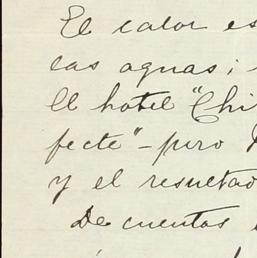 El calor es
las aguas;
El hotel "Chi
fecte" - puro
y el resultado
De cuentas